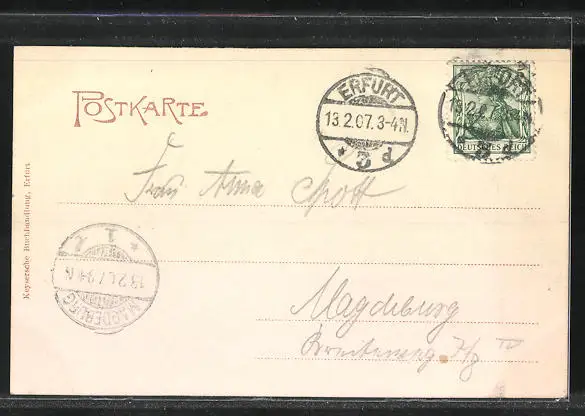 POSTKARTE.
ERFURT
13.2.07.3-4N.
* 2 d
ERFURT
13.2.07
DEUTSCHES REICH
Frau Anna Spott
Keysersche Buchhandlung, Erfurt
* 1 l
13.2.07.9-10N.
MAGDEBURG
Magdeburg
Breiteweg